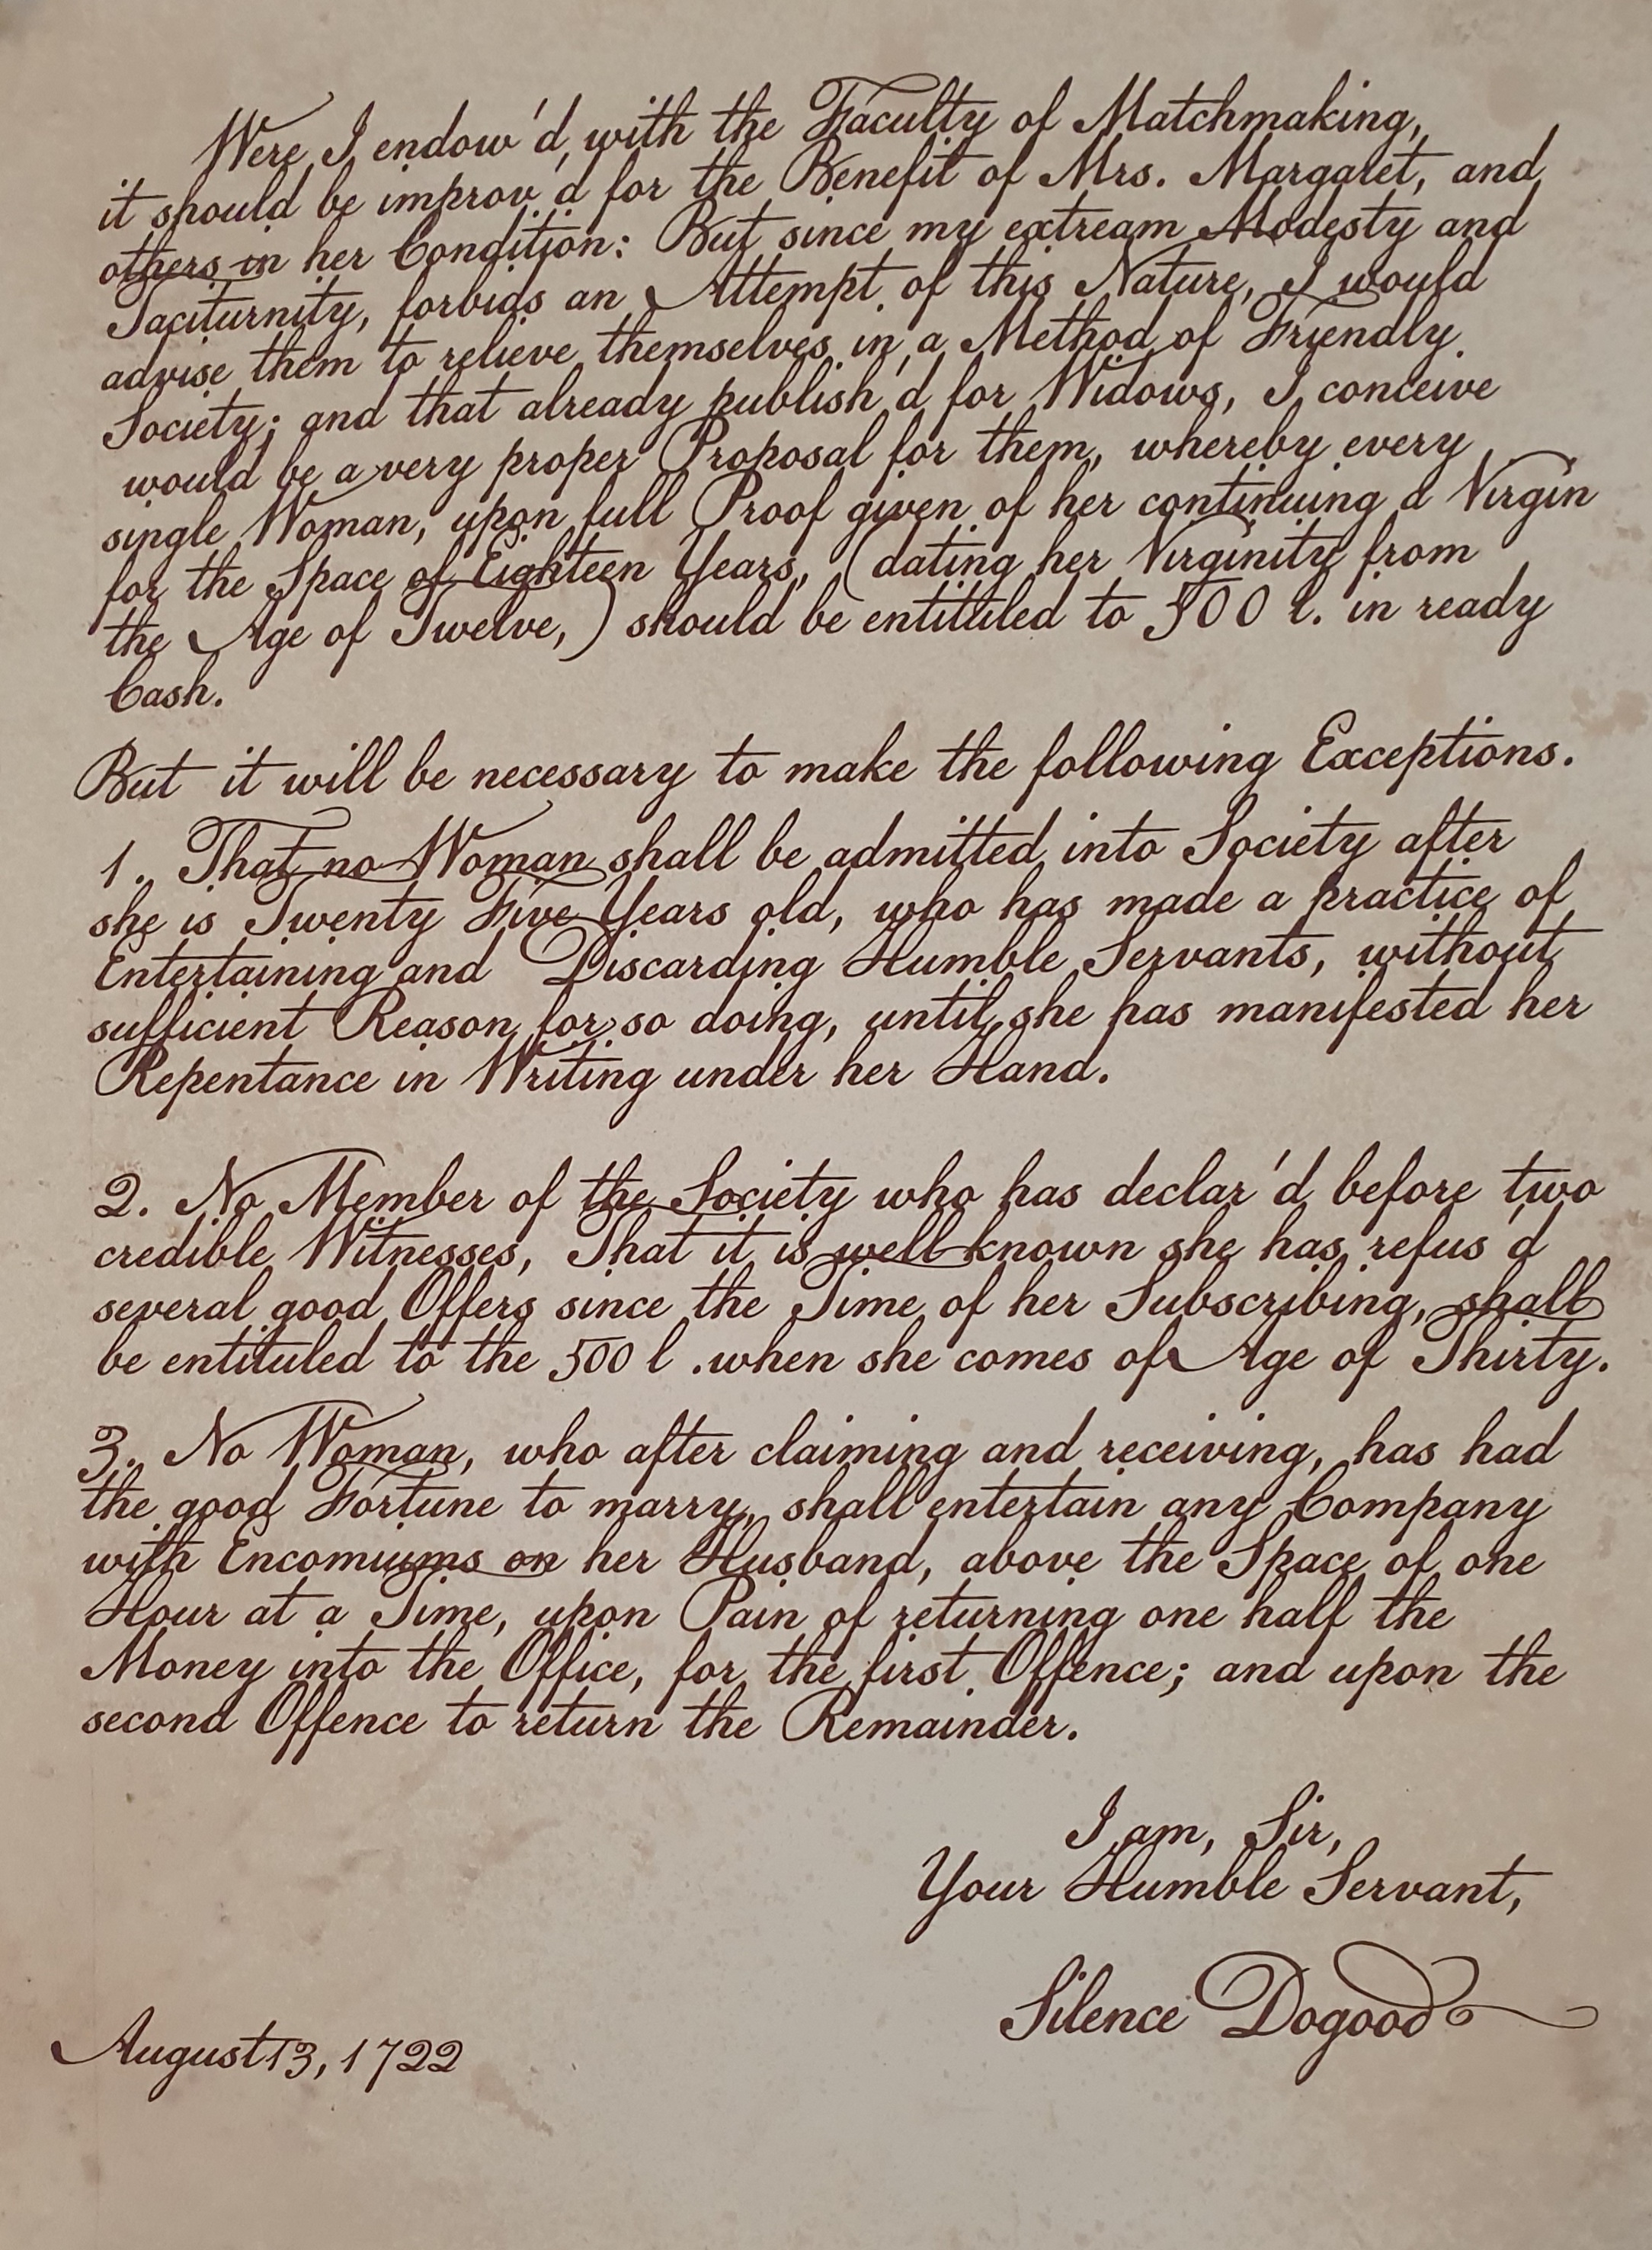 Were I endow'd with the Faculty of Matchmaking,
it should be improv'd for the Benefit of Mrs. Margaret, and
others in her Condition: But since my extream Modesty and
Taciturnity, forbids an Attempt of this Nature, I would
advise them to relieve themselves in a Method of Friendly
Society; and that already publish'd for Widows, I conceive
would be a very proper Proposal for them, whereby every
single Woman, upon full Proof given of her continuing a Virgin
for the Space of Eighteen Years, (dating her Virginity from
the Age of Twelve,) should be entituled to 500 l. in ready
Cash.
But it will be necessary to make the following Exceptions.
1. That no Woman shall be admitted into Society after
she is Twenty Five Years old, who has made a practice of
Entertaining and Discarding Humble Servants, without
sufficient Reason for so doing, until she has manifested her
Repentance in Writing under her Hand.
2. No Member of the Society who has declar'd before two
credible Witnesses, That it is well known she has refus'd
several good Offers since the Time of her Subscribing, shall
be entituled to the 500 l. when she comes of Age of Thirty.
3. No Woman, who after claiming and receiving, has had
the good Fortune to marry, shall entertain any Company
with Encomiums on her Husband, above the Space of one
Hour at a Time, upon Pain of returning one half the
Money into the Office, for the first Offence; and upon the
second Offence to return the Remainder.
I am, Sir,
Your Humble Servant,
Silence Dogood
August 13, 1722